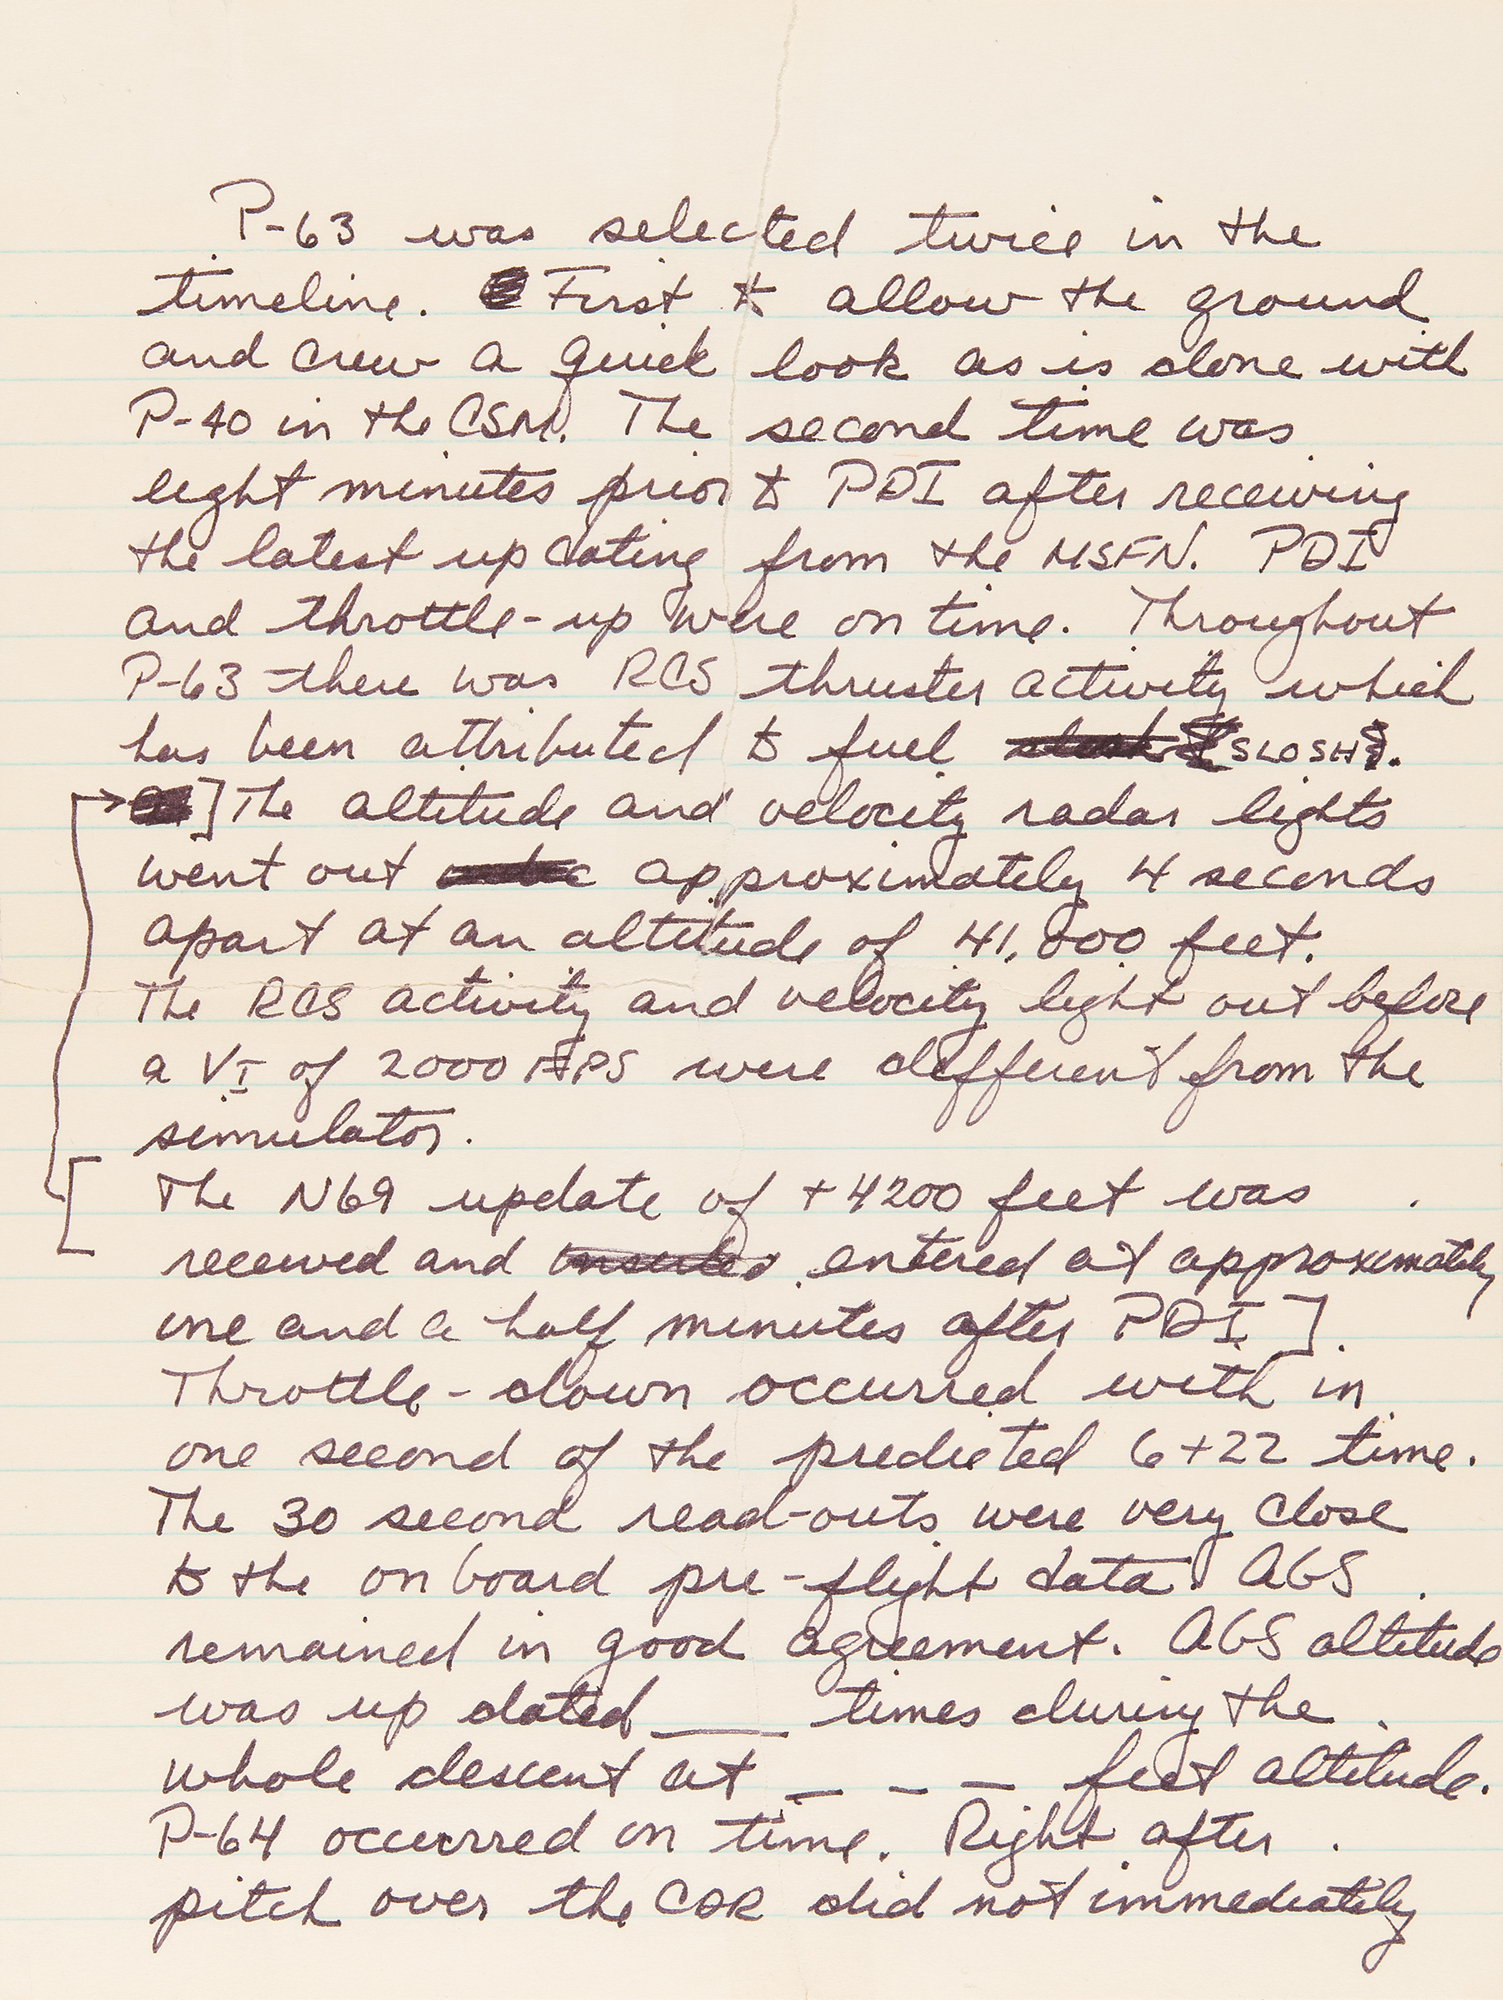 P-63 was selected twice in the
timeline. First to allow the ground
and crew a quick look as is done with
P-40 in the CSM. The second time was
eight minutes prior to PDI after receiving
the latest up dating from the MSFN. PDI
and throttle-up were on time. Throughout
P-63 there was RCS thruster activity which
has been attributed to fuel SLOSH.
] The altitude and velocity radar lights
went out approximately 4 seconds
apart at an altitude of 41,000 feet.
The RCS activity and velocity light out before
a VI of 2000 FPS were different from the
simulator.
[ The N69 update of +4200 feet was
received and entered at approximately
one and a half minutes after PDI ].
Throttle-down occurred with in
one second of the predicted 6+22 time.
The 30 second read-outs were very close
to the on board pre-flight data. AGS
remained in good agreement. AGS altitude
was up dated ___ times during the
whole descent at _ _ _ feet altitude.
P-64 occurred on time. Right after
pitch over the CDR did not immediately